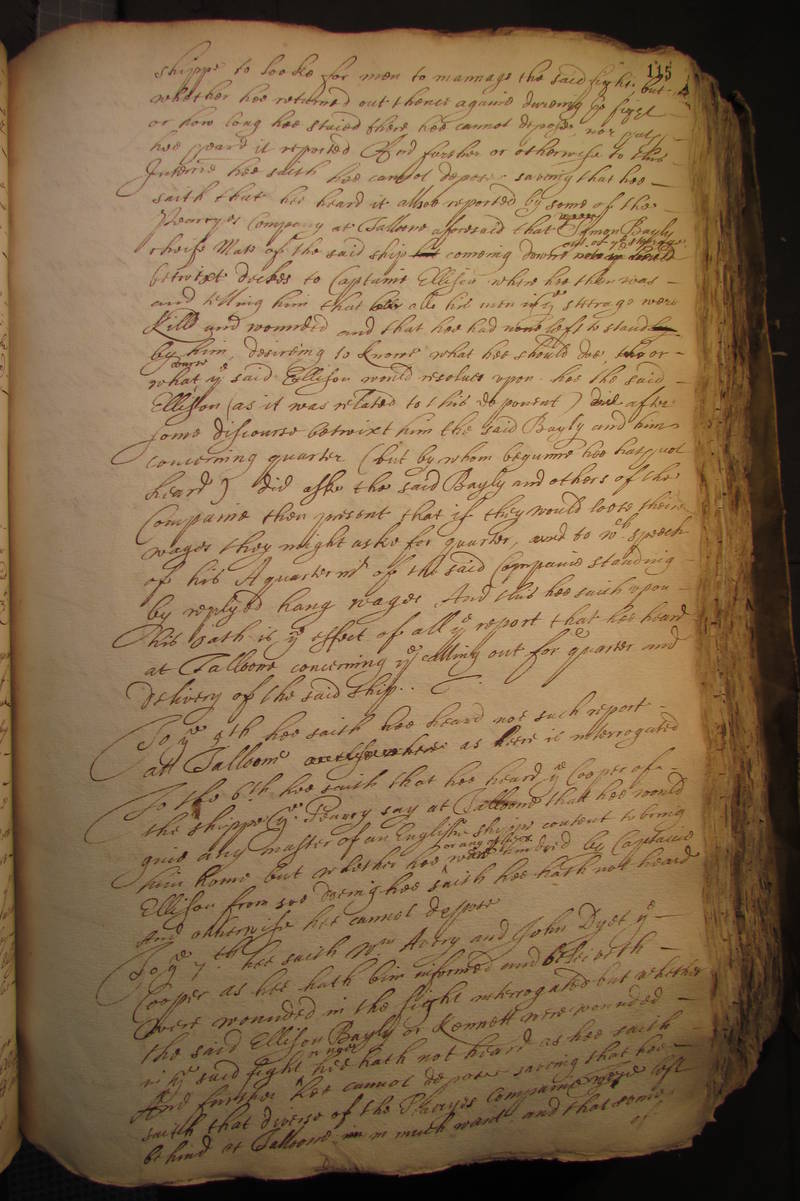 115
shippe to looke for men to mannage the said fight, but
whether hee returned out thence againe dureing ye fight
or how long hee staied there hee cannot depose, nor hath
hee heard it reported And further or otherwise to this
Interrie hee saith hee cannot depose saveing that hee
saith that hee heard it alsoe reported by some of the
Pearryes Company at Talloone aforesaid that Symon Bayly
cheife Mate of the said ship comeing downe out of ye steerage
betwixt deckes to Captaine Ellison where hee then was
and telling him that alle his men in ye steerage were
Killd and wounded and that hee had none left to stand
by him, desireing to knowe what hee should doe, or
what course ye said Ellison would resolve upon hee the said
Ellison (as it was related to this deponent) after
some discourse betwixt him the said Bayly and him
concerning quarter (but by whom begunne hee hath not
heard) did aske the said Bayly and others of the
Companie then present that if they would loose their
wages they might aske for quarter, and to wch speech
of his A quarter mr of the said Companie standing
by replyed hang wages, And this hee saith upon
his oath is ye effect of all ye report that hee heard
at Talloone concerning ye calling out for quarter and
delivery of the said ship.
To ye 5th hee saith hee heard noe such report
att Talloone as heere is interrogated
To the 6th. hee saith that hee heard ye Cooper of
the shippe ye Pearry say at Talloone that hee would
give any Master of an English shippe content to bring
him home but whether hee or any other was hindred by Captaine
Ellison from soe doeing hee saith hee hath not heard
And otherwise hee cannot depose
To ye 7th hee saith Wm Avery and John Dyet ye
Cooper as hee hath bin informed and beleiveth
were wounded in the fight interrogated but whether
the said Ellison Bayly or Kennett were wounded
in ye said fight hee hath not heard as hee saith
And further hee cannot depose saveing that hee
saith that diverse of the Pearyes Companie were left
behind at Talloone in much want and that some
of